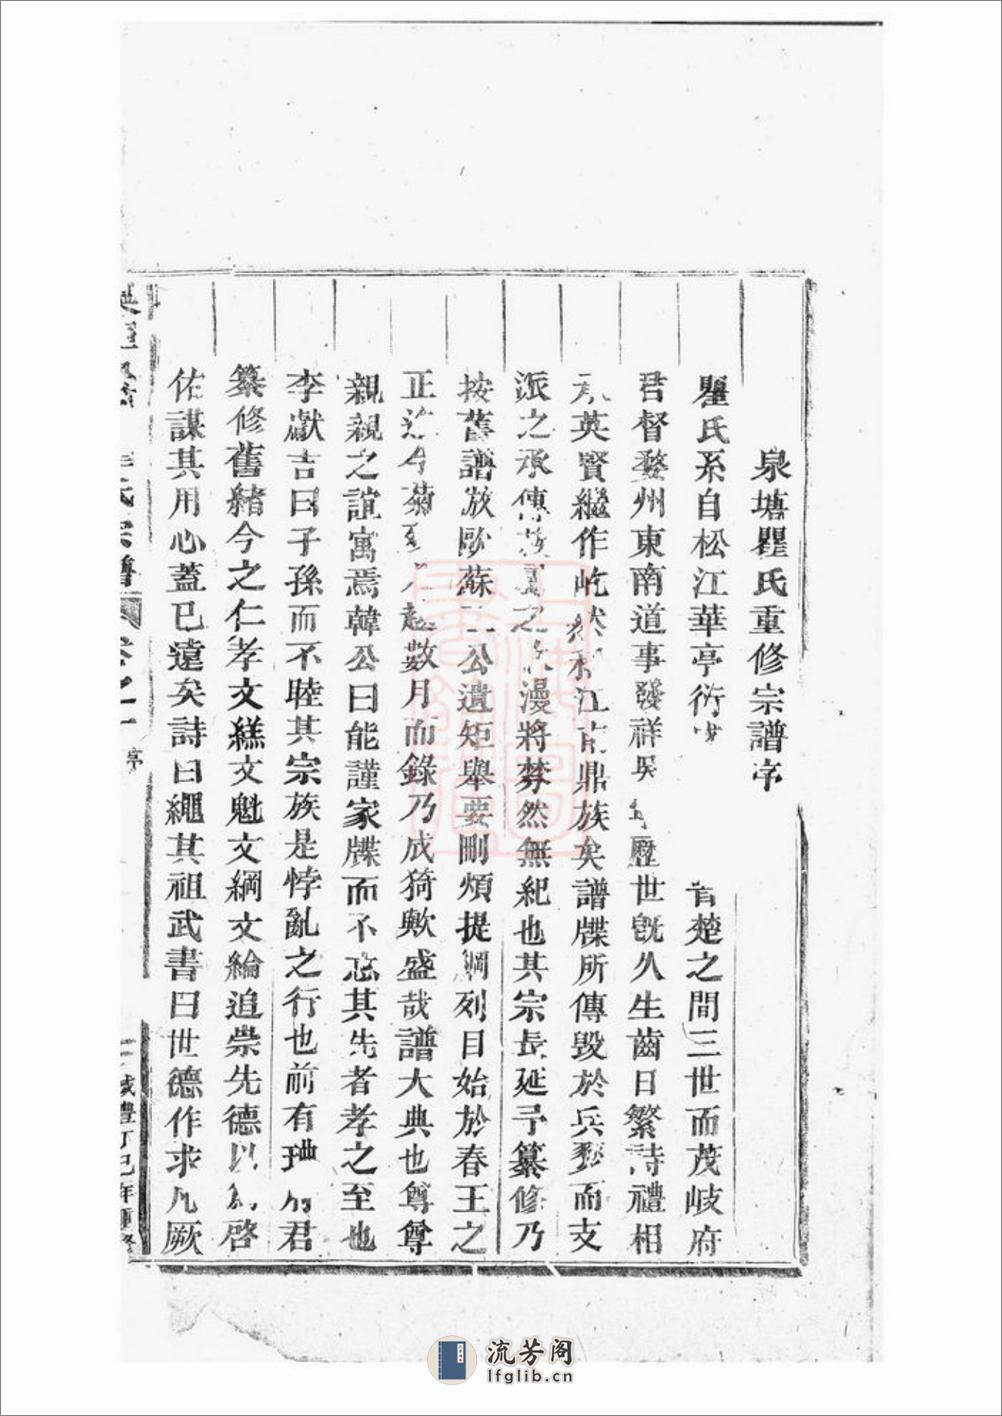 泉塘瞿氏重修宗譜序
瞿氏系自松江華亭衍 楚之間三世而茂岐府
君督婺州東南道事發祥吳 歷世既久生齒日繁詩禮相
英賢繼作屹然 江南鼎族矣譜牒所傳毀於兵燹而支
派之承傳 之 漫將棼然無紀也其宗長延予纂修乃
按舊譜放歐蘇二公遺矩舉要刪煩提綱列目始於春王之
正 今菊 數月而錄乃成猗歟盛哉譜大典也尊尊
親親之誼寓焉韓公曰能謹家牒而不忘其先者孝之至也
李獻吉曰子孫而不睦其宗族是悖亂之行也前有 君
纂修舊緒今之仁孝文繇文魁文綱文綸追崇先德以 啓
佑謀其用心蓋已遠矣詩曰繩其祖武書曰世德作求凡厥
氏宗譜 卷之一 序 咸豐丁巳年重修
流芳阁
lfglib.cn